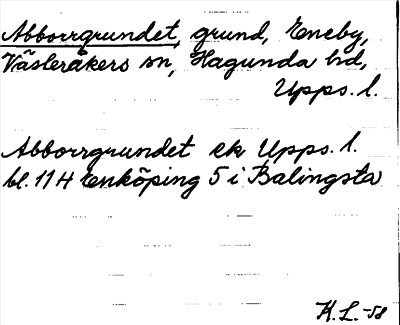 Abborrgrundet, grund, Eneby,
Västeråkers sn, Hagunda hd,
Upps. l.
Abborrgrundet ek Upps. l.
bl. 11 H Enköping 5 i Balingsta
H. L. -58